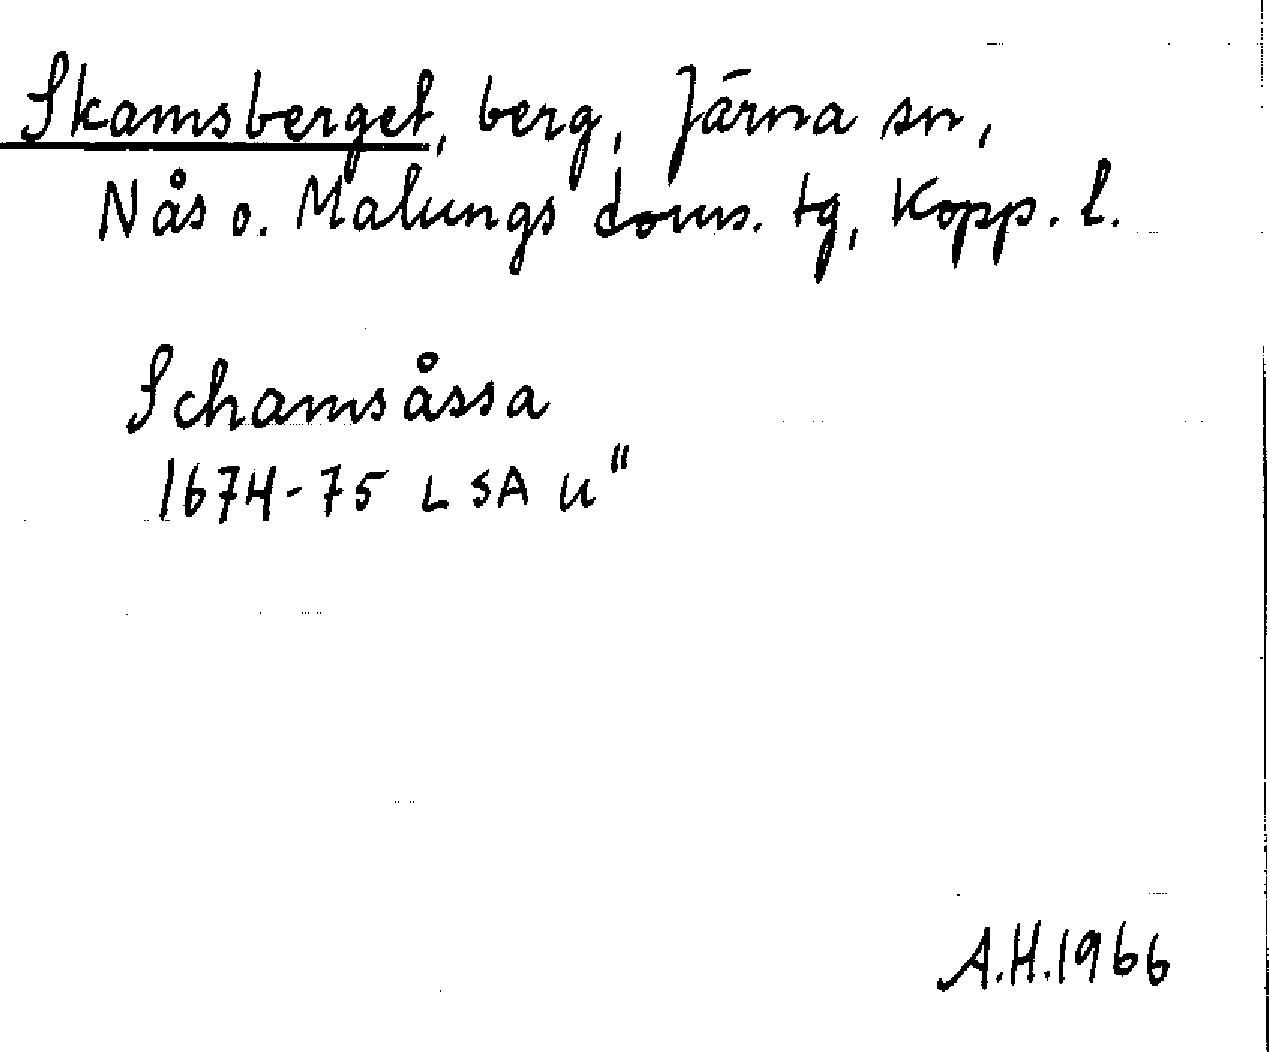 Skamsberget, berg, Järna sn,
Nås o. Malungs doms. tg, Kopp. l.
Schamsåssa
1674-75 LSA u"
A.H.1966